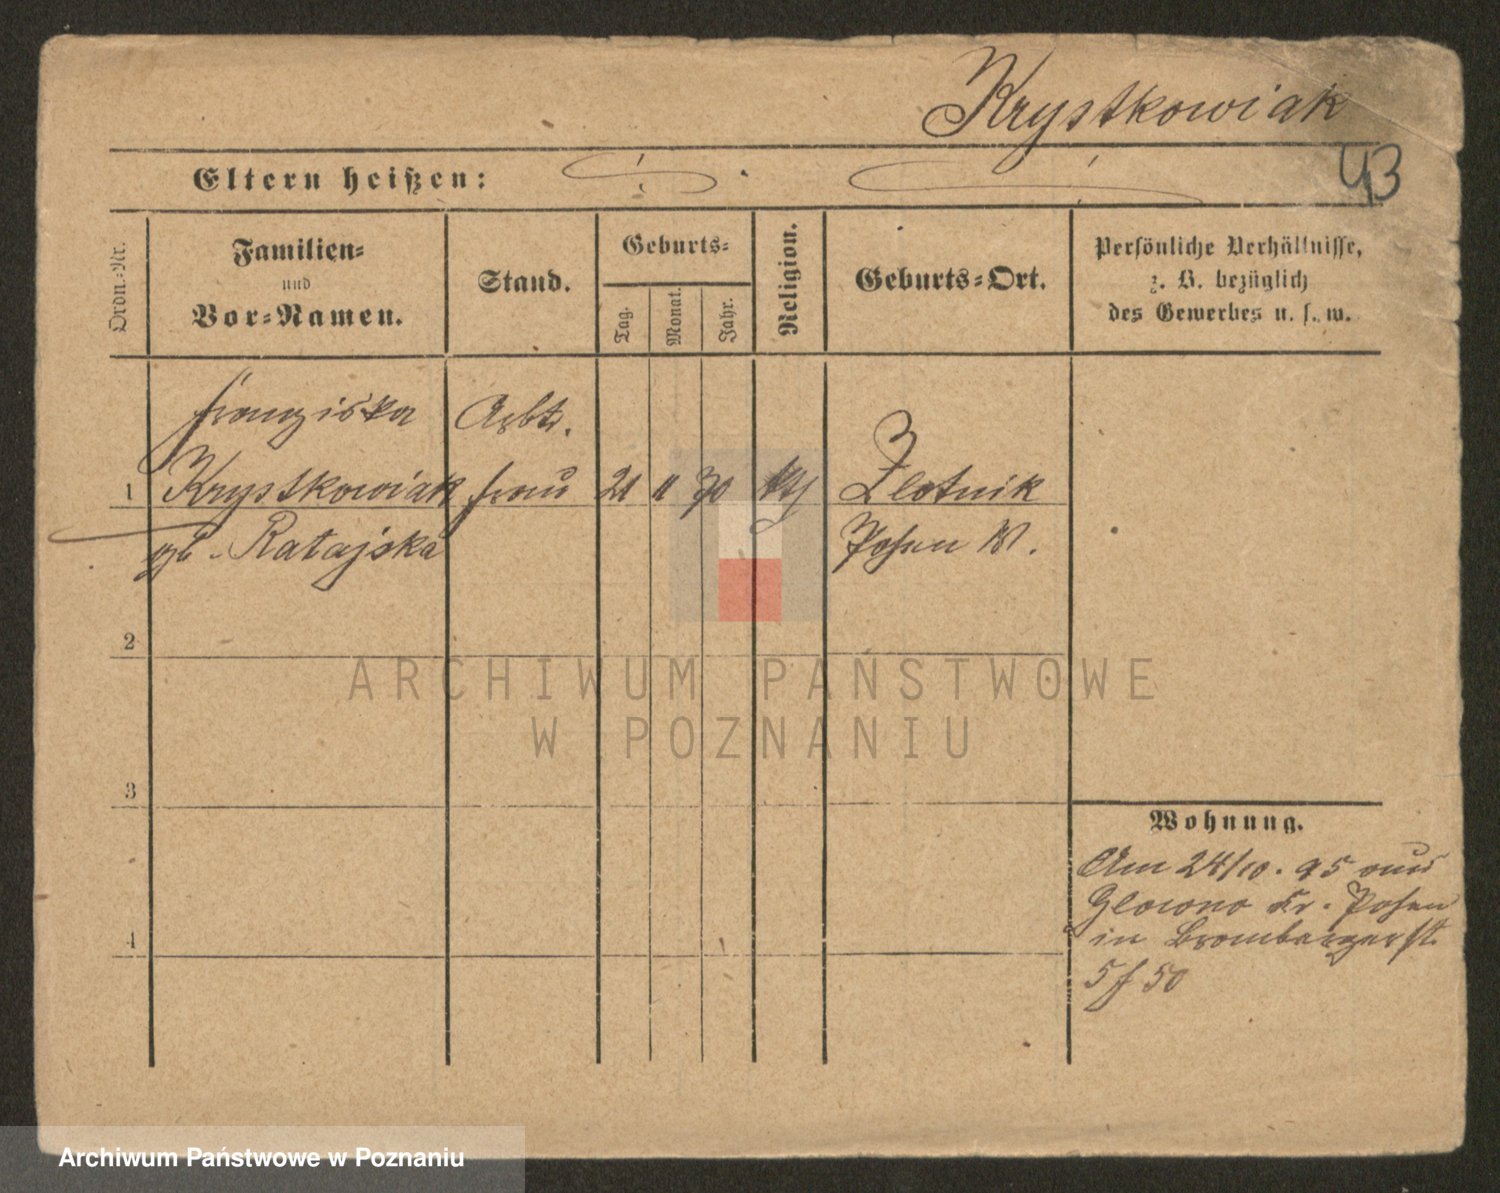 Krystkowiak
43
Eltern heißen:
Ordn.-Nr.
Familien-
und
Vor-Namen.
Stand.
Geburts-
Tag.
Monat.
Jahr.
Religion.
Geburts-Ort.
Persönliche Verhältnisse,
z. B. bezüglich
des Gewerbes u. s. w.
Franziska Arbtr.
1 Krystkowiak frau 21 11 70 kth Zlotnik
gb. Ratajska Posen W.
2
3
4
Wohnung.
Am 24/10. 95 aus
Glowno Kr. Posen
in Brombergerst.
5 f 50
ARCHIWUM PAŃSTWOWE
W POZNANIU
Archiwum Państwowe w Poznaniu